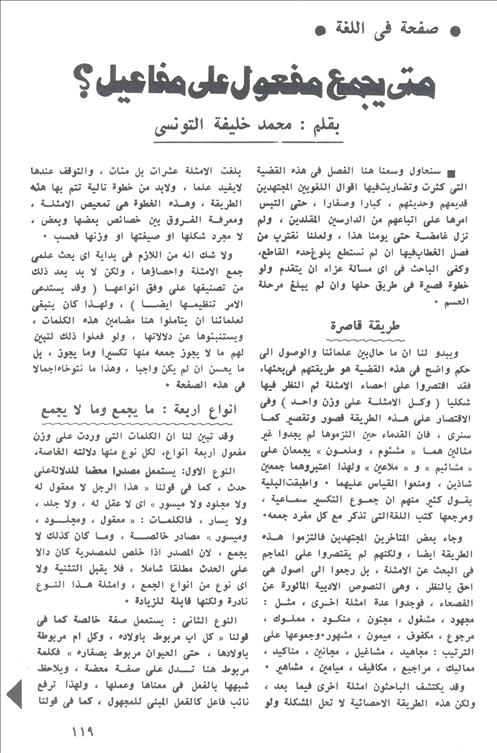 ● صفحة فى اللغة ●
متى يجمع مفعول على مفاعيل ؟
بقلم : محمد خليفة التونسى
■ سنحاول وسعنا هنا الفصل في هذه القضية
التى كثرت وتضاربت فيها أقوال اللغويين المجتهدين
قديمهم وحديثهم ، كبارا وصغارا ، حتى التبس
امرها على اتباعهم من الدارسين المقلدين ، ولم
تزل غامضة حتى يومنا هذا ، ولعلنا نقترب من
فصل الخطاب فيها ان لم نستطع بلوغ حده القاطع،
وكفى الباحث فى اى مسألة عزاء ان يتقدم ولو
خطوة قصيرة فى طريق حلها وان لم يبلغ مرحلة
الحسم .
طريقة قاصرة
ويبدو لنا ان ما حال بين علمائنا والوصول الى
حكم واضح فى هذه القضية هو طريقتهم فى بحثها،
فقد اقتصروا على احصاء الامثلة ثم النظر فيها
شكليا ( وكل الامثلة على وزن واحد ) وفى
الاقتصار على هذه الطريقة قصور وتقصير كما
سنرى ، فان القدماء حين التزموها لم يجدوا غير
مثالين هما « مشئوم ، وملعون » يجمعان على
« مشائيم » و « ملاعين » ولهذا اعتبروهما جمعين
شاذين ، ومنعوا القياس عليهما . واطبقت البلية
بقول كثير منهم ان جموع التكسير سماعية ،
ومرجعها كتب اللغة التى تذكر مع كل مفرد جمعه.
وجاء بعض المتأخرين المجتهدين فالتزموا هذه
الطريقة ايضا ، ولكنهم لم يقتصروا على المعاجم
فى البحث عن الامثلة ، بل رجعوا الى اصول هى
احق بالنظر ، وهى النصوص الادبية الماثورة عن
الفصحاء ، فوجدوا عدة امثلة اخرى ، مثل :
مجهود ، مشغول ، مجنون ، منكود ، مملوك ،
مرجوع ، مكفوف ، ميمون ، مشهور، وجموعها على
الترتيب : مجاهيد ، مشاغيل ، مجانين ، مناكيد ،
مماليك ، مراجيع ، مكافيف ، ميامين ، مشاهير .
وقد يكتشف الباحثون امثلة اخرى فيما بعد ،
ولكن هذه الطريقة الاحصائية لا تحل المشكلة ولو
بلغت الامثلة عشرات بل مئات ، والتوقف عندها
لا يفيد علما ، ولابد من خطوة تالية تتم بها هذه
الطريقة ، وهذه الخطوة هى تمحيص الامثلة ،
ومعرفة الفروق بين خصائص بعضها وبعض ،
لا مجرد شكلها او صيغتها او وزنها فحسب .
ولا شك انه من اللازم فى بداية اى بحث علمى
جمع الامثلة واحصاؤها ، ولكن لا بد بعد ذلك
من تصنيفها على وفق انواعها ( وقد يستدعى
الامر تنظيمها ايضا ) ، ولهذا كان ينبغى
لعلمائنا ان يتأملوا هنا مضامين هذه الكلمات ،
ويستنبئوها عن دلالاتها ، ولو فعلوا ذلك لتبين
لهم ما لا يجوز جمعه منها تكسيرا وما يجوز ، بل
ما يحسن ان لم يكن واجبا ، وهذا ما نتوخاه اجمالا
فى هذه الصفحة .
انواع اربعة : ما يجمع وما لا يجمع
وقد تبين لنا ان الكلمات التى وردت على وزن
مفعول أربعة أنواع، لكل نوع منها دلالته الخاصة،
النوع الاول: يستعمل مصدرا محضا للدلالة على
حدث ، كما فى قولنا « هذا الرجل لا معقول له
ولا مجلود ولا ميسور » اى لا عقل له ، ولا جلد ،
ولا يسار ، فالكلمات : « معقول ، ومجلود ،
وميسور » مصادر خالصة ، وما كان كذلك لا
يجمع ، لان المصدر اذا خلص للمصدرية كان دالا
على الحدث مطلقا شاملا ، فلا يقبل التثنية ولا
اى نوع من انواع الجمع ، وامثلة هذا النوع
نادرة ولكنها قابلة للزيادة .
النوع الثانى : يستعمل صفة خالصة كما فى
قولنا « كل اب مربوط باولاده ، وكل ام مربوطة
باولادها ، حتى الحيوان مربوط بصغاره » فكلمة
مربوط هنا تدل على صفة محضة ، ويلاحظ
شبهها بالفعل فى معناها وعملها ، ولهذا ترفع
نائب فاعل كالفعل المبنى للمجهول ، كما فى قولنا
١١٩